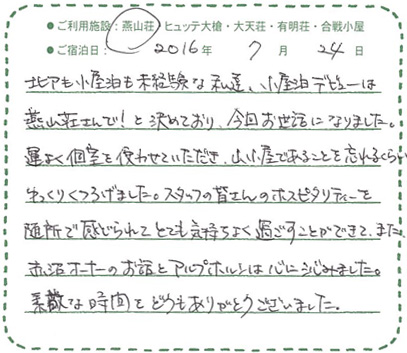 ●ご利用施設：燕山荘・ヒュッテ大槍・大天荘・有明荘・合戦小屋
●ご宿泊日： 2016年 7月 24日
北アも小屋泊も未経験な私達、小屋泊デビューは
燕山荘さんで！と決めており、今回お世話になりました。
運よく個室を使わせていただき、山小屋であることを忘れるくらい
ゆっくりくつろげました。スタッフの皆さんのホスピタリティーを
随所で感じられてとても気持ちよく過ごすことができて、また、
赤沼オーナーのお話とアルプホルンは心にしみました。
素敵な時間をどうもありがとうございました。